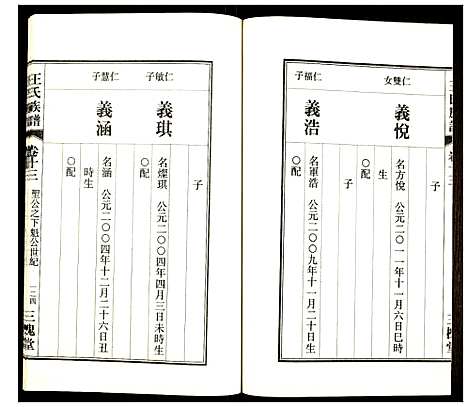 仁雙女
義悅
名方悅 公元二〇一一年十一月六日巳時
生
〇配
子
仁福子
義浩
名軍浩 公元二〇〇九年十一月二十日生
〇配
子
仁敏子
義琪
名燦琪 公元二〇〇四年四月三日未時生
〇配
仁慧子
義涵
名涵 公元二〇〇四年十二月二十六日丑
時生
〇配
王氏族譜
卷十三
聖公之下魁公世紀
一二四
三槐堂